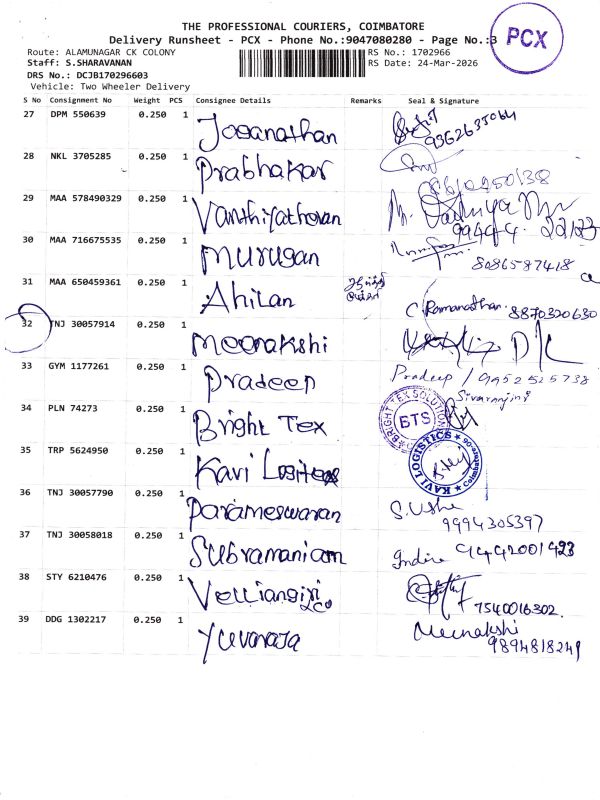 THE PROFESSIONAL COURIERS, COIMBATORE
Delivery Runsheet - PCX - Phone No.:9047080280 - Page No.:3
PCX
Route: ALAMUNAGAR CK COLONY
RS No.: 1702966
Staff: S.SHARAVANAN
RS Date: 24-Mar-2026
DRS No.: DCJB170296603
Vehicle: Two Wheeler Delivery
S No Consignment No Weight PCS Consignee Details Remarks Seal & Signature
27 DPM 550639 0.250 1 Joganathan
28 NKL 3705285 0.250 1 Prabhakar
29 MAA 578490329 0.250 1 Vanthiyathevan
30 MAA 716675535 0.250 1 Murugan 8086587418
31 MAA 650459361 0.250 1 Ahilan C Ramanathan. 8870320630
32 TNJ 30057914 0.250 1 Meenakshi
33 GYM 1177261 0.250 1 Pradeep Pradeep / 9952525738
Sivaranjini
34 PLN 74273 0.250 1 Bright Tex BRIGHT TEX SOLUTION BTS
35 TRP 5624950 0.250 1 Kavi KAVI LOGISTICS
36 TNJ 30057790 0.250 1 Parameswaran S. Usha
9994305397
37 TNJ 30058018 0.250 1 Subramaniam 9442001423
38 STY 6210476 0.250 1 Velliangiri
& Co 7540016302.
39 DDG 1302217 0.250 1 Yuvaraja Meenakshi
9894818241